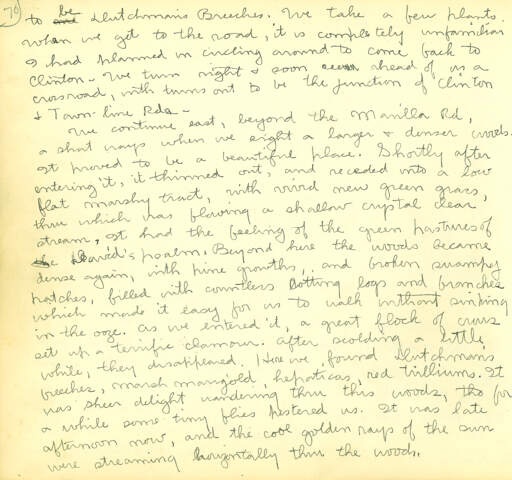 70
to be Dutchmans Breeches. We take a few plants.
When we get to the road, it is completely unfamiliar
I had planned in circling around to come back to
Clinton - We turn right & soon seen ahead of us a
crossroad, with turns out to be the junction of Clinton
& Town-line Rds -
We continue east, beyond the Manilla Rd,
a short ways when we sight a larger & denser woods.
It proved to be a beautiful place. Shortly after
entering it, it thinned out, and receded into a low
flat marshy tract, with vivid new green grass,
thru which was flowing a shallow crystal clear
stream, It had the feeling of the green pastures of
David's psalm. Beyond here the woods became
dense again, with pine growths, and broken swampy
patches, filled with countless rotting logs and branches
which made it easy for us to walk without sinking
in the ooze. As we entered it, a great flock of crows
set up a terrific clamour. After scolding a little
while, they disappeared. Here we found Dutchmans
breeches, marsh marigold, hepaticas, red trilliums. It
was sheer delight wandering thru this woods, tho for
a while some tiny flies pestered us. It was late
afternoon now, and the cool golden rays of the sun
were streaming horizontally thru the woods.